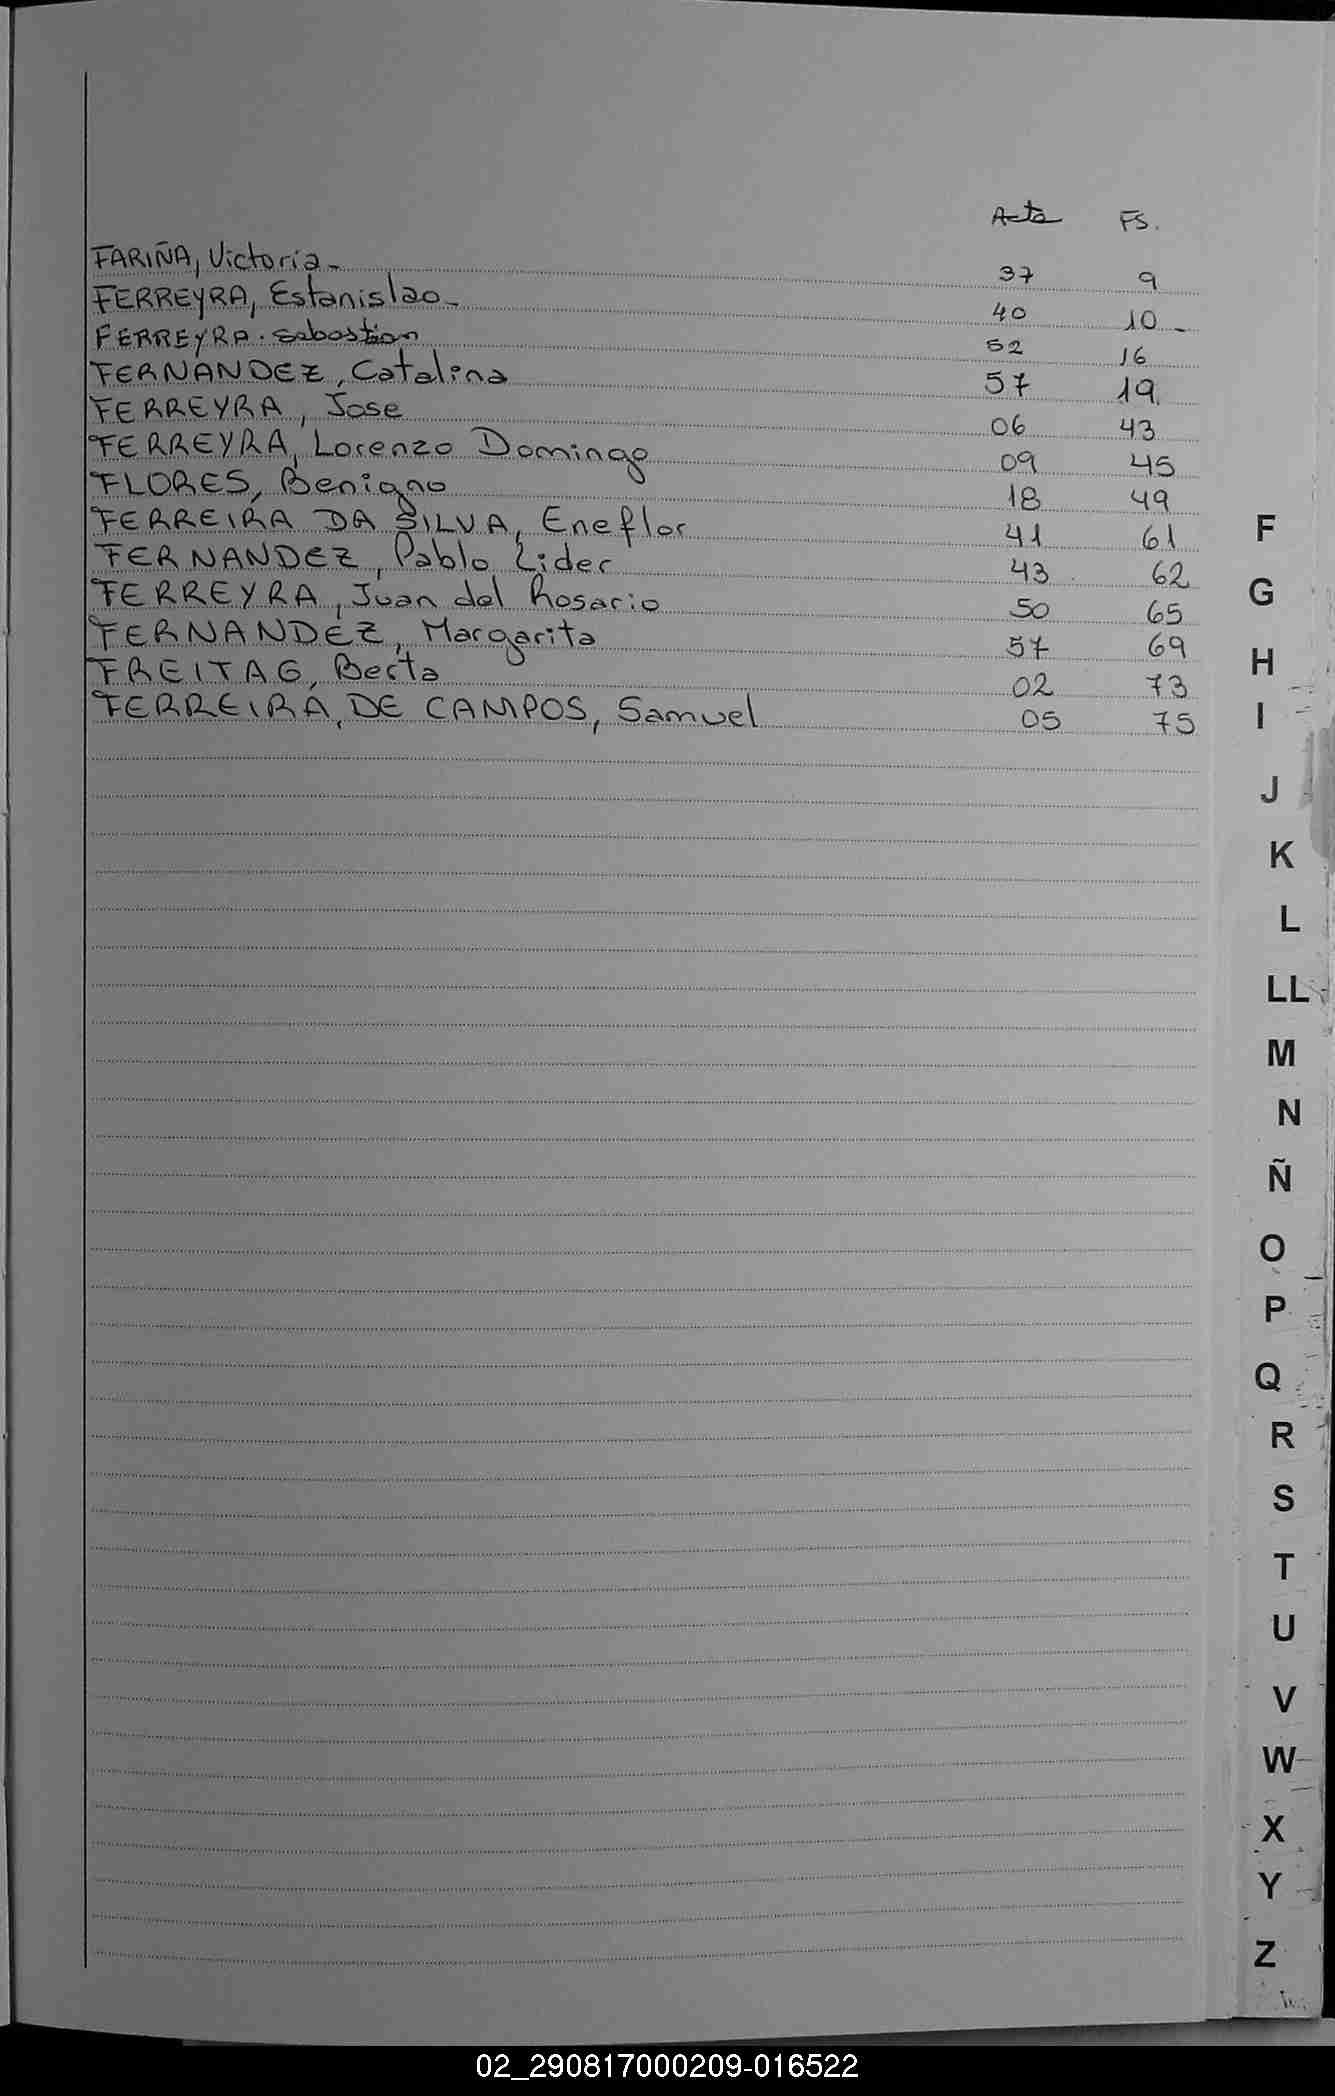 Acta FS.
FARIÑA, Victoria - 37 9
FERREYRA, Estanislao - 40 10 -
FERREYRA. Sebastian 52 16
FERNANDEZ, Catalina 57 19
FERREYRA, Jose 06 43
FERREYRA, Lorenzo Domingo 09 45
FLORES, Benigno 18 49
FERREIRA DA SILVA, Eneflor 41 61
FERNANDEZ, Pablo Lider 43 62
FERREYRA, Juan del Rosario 50 65
FERNANDEZ, Margarita 57 69
FREITAG, Berta 02 73
FERREIRA, DE CAMPOS, Samuel 05 75
F
G
H
I
J
K
L
LL
M
N
Ñ
O
P
Q
R
S
T
U
V
W
X
Y
Z
02_290817000209-016522